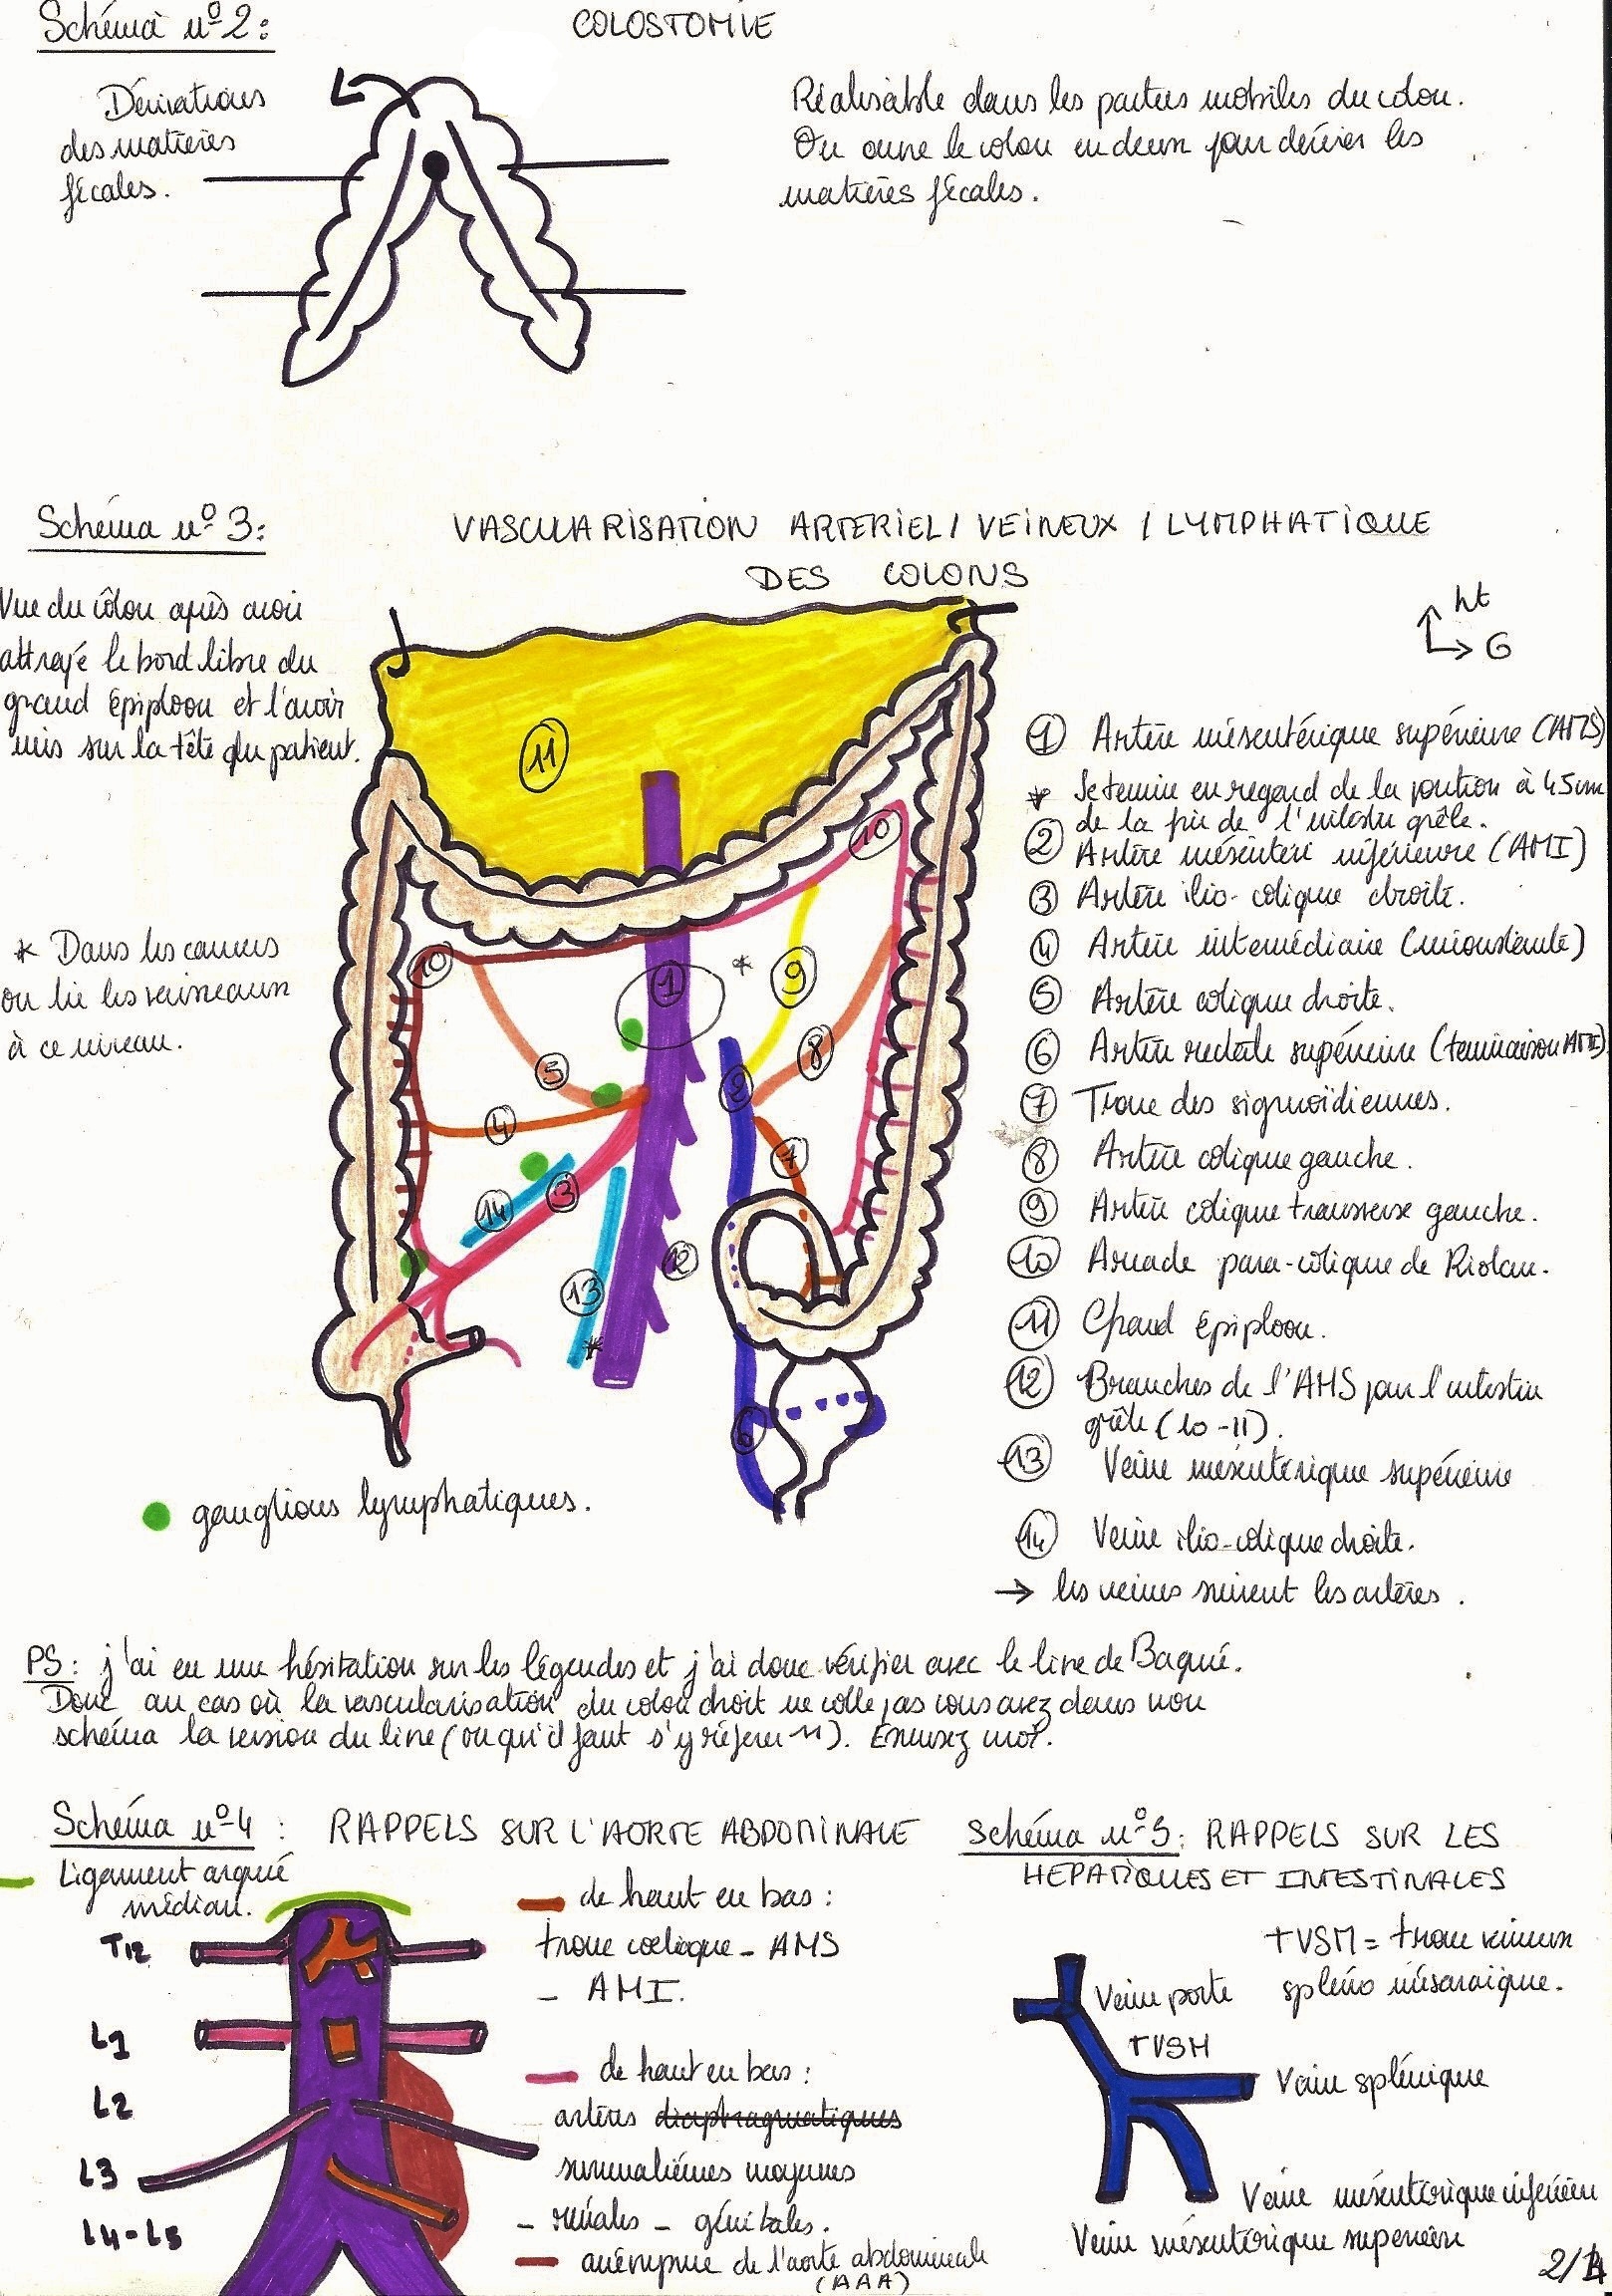 Schéma nº2:
COLOSTOMIE
Dérivations
des matières
fécales.
Réalisable dans les parties mobiles du colon.
On ouvre le colon en deux pour dériver les
matières fécales.
Schéma nº3:
VASCULARISATION ARTERIEL / VEINEUX / LYMPHATIQUE
DES COLONS
Vue du côlon après avoir
attrapé le bord libre du
grand épiploon et l'avoir
mis sur la tête du patient.
ht
G
* Dans les cancers
on lie les vaisseaux
à ce niveau.
1 Artère mésentérique supérieure (AMS)
* Se termine en regard de la portion à 45cm
de la fin de l'intestin grêle.
2 Artère mésentéri inférieure (AMI)
3 Artère iléo-colique droite.
4 Artère intermédiaire (inconstante)
5 Artère colique droite.
6 Artère rectale supérieure (terminaison AMI)
7 Tronc des sigmoïdiennes.
8 Artère colique gauche.
9 Artère colique transverse gauche.
10 Arcade para-colique de Riolan.
11 Grand épiploon.
12 Branches de l'AMS pour l'intestin
grêle (10-11).
13 Veine mésentérique supérieure
14 Veine iléo-colique droite.
→ les veines suivent les artères.
11
10
10
1
*
9
5
8
2
4
7
14
3
12
13
*
6
ganglions lymphatiques.
PS: j'ai eu une hésitation sur les légendes et j'ai donc vérifier avec le livre de Baqué.
Donc au cas où la vascularisation du colon droit ne colle pas vous avez dans mon
schéma la version du livre (vu qu'il faut s'y référer ^^). Excusez moi.
Schéma nº4 : RAPPELS SUR L'AORTE ABDOMINALE
Ligament arqué
médian.
T12
L1
L2
L3
L4-L5
de haut en bas:
tronc coeliaque - AMS
- AMI.
de haut en bas:
artères diaphragmatiques
surrénaliennes moyennes
- rénales - génitales.
anévrysme de l'aorte abdominale
(AAA)
Schéma nº5: RAPPELS SUR LES
HEPATIQUES ET INTESTINALES
TVSM = tronc veineux
spléno mésaraïque.
Veine porte
TVSM
Veine splénique
Veine mésentérique inférieure
Veine mésentérique supérieure
2/14